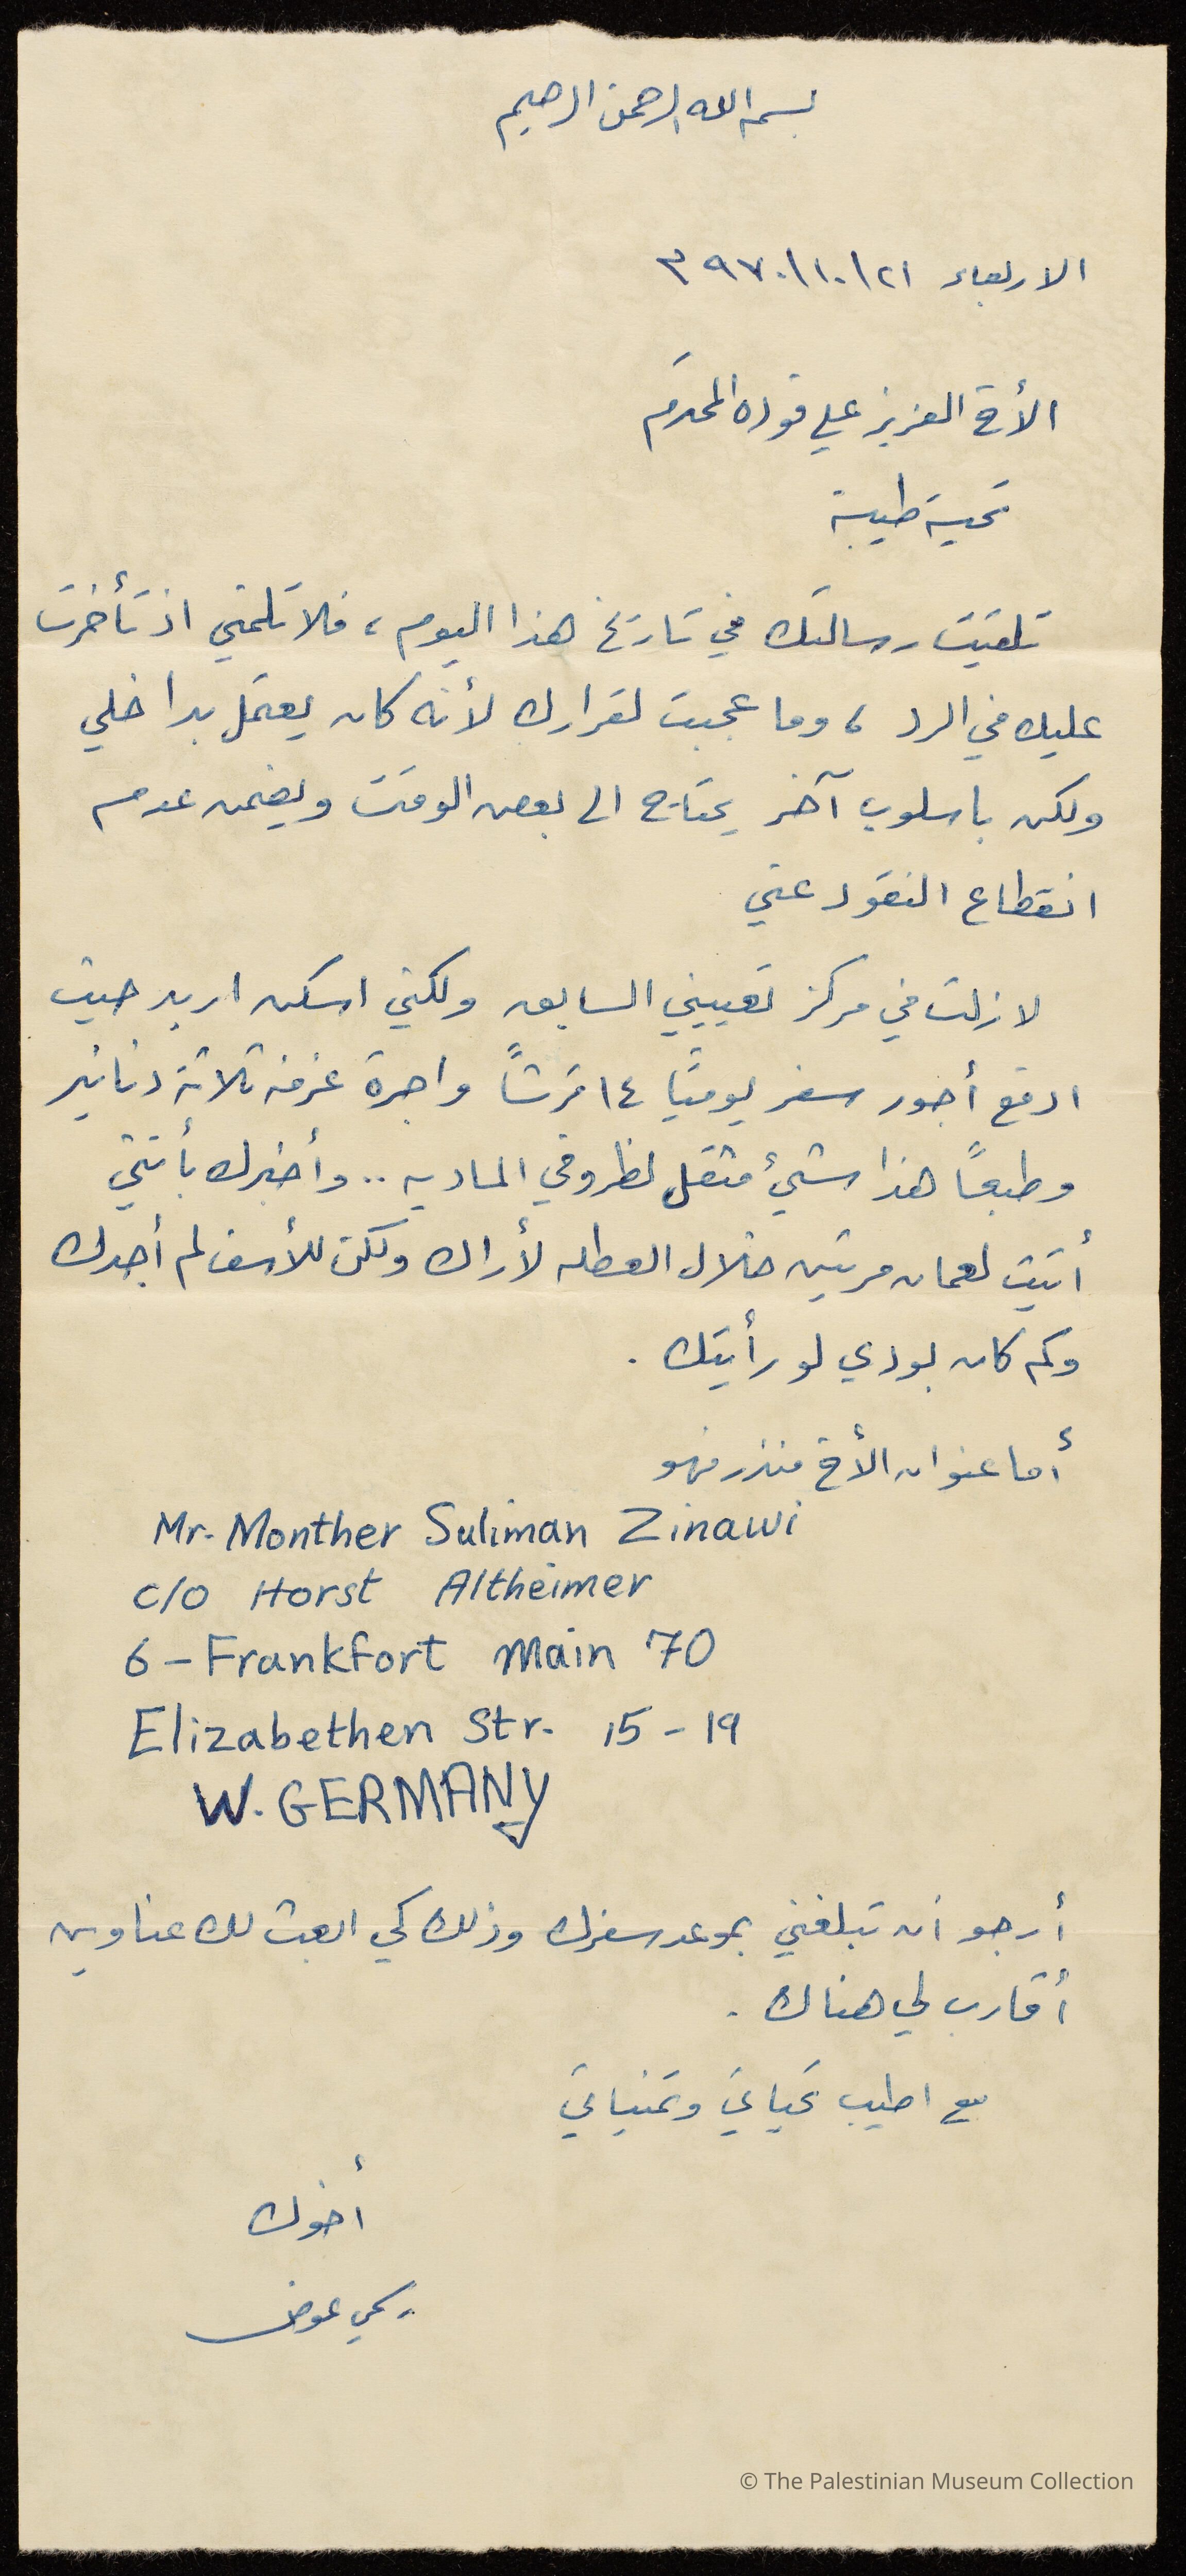 بسم الله الرحمن الرحيم
الاربعاء ٢١/١٠/٩٧٠ م
الأخ العزيز علي قوده المحترم
تحية طيبة
تلقيت رسالتك في تاريخ هذا اليوم ، فلا تلمني اذ تأخرت
عليك في الرد ، وما عجبت لقرارك لأنه كان يعتمل بداخلي
ولكن باسلوب آخر يحتاج الى بعض الوقت ويضمن عدم
انقطاع النقود عني
لا زلت في مركز تعييني السابق ولكني اسكن اربد حيث
ادفع أجور سفر يوميًا ١٤ قرشاً واجرة غرفه ثلاثة دنانير
وطبعاً هذا شيئ مثقل لظروفي الماديه .. وأخبرك بأنني
أتيت لعمان مرتين خلال العطله لأراك ولكن للأسف لم أجدك
وكم كان بودي لو رأيتك .
أما عنوان الأخ منذر فهو
Mr. Monther Suliman Zinawi
c/o Horst Altheimer
6 - Frankfort Main 70
Elizabethen Str. 15 - 19
W. GERMANY
أرجو ان تبلغني بموعد سفرك وذلك كي ابعث لك عناوين
أقارب لي هناك .
مع اطيب تحياتي وتمنياتي
أخوك
عوض
© The Palestinian Museum Collection